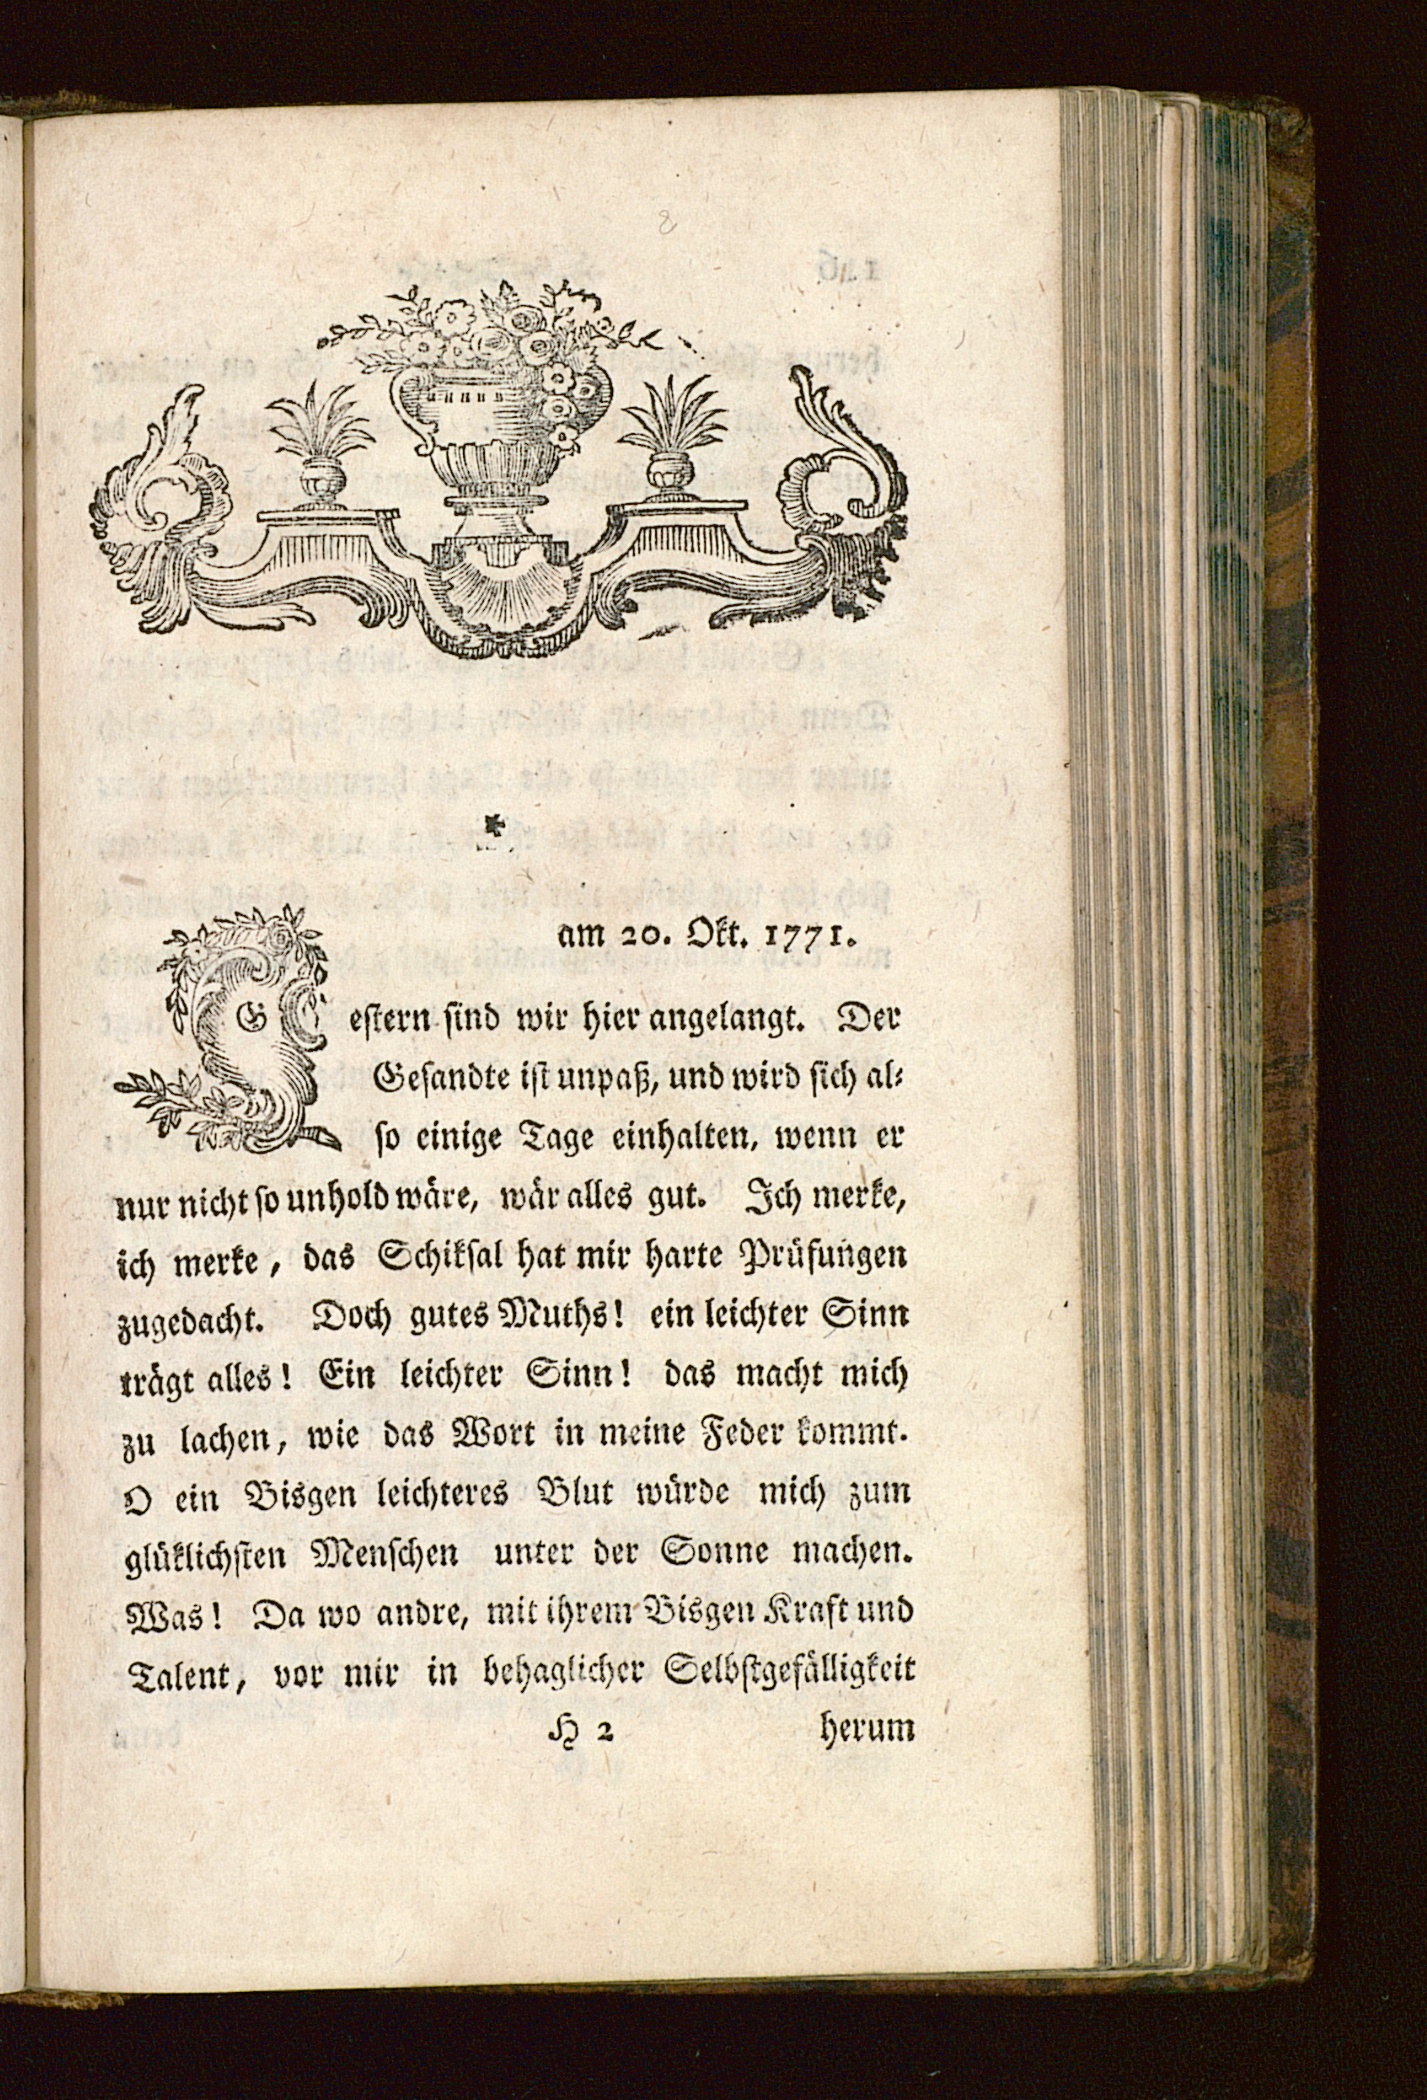 *
am 20. Okt. 1771.
Gestern sind wir hier angelangt. Der
Gesandte ist unpaß, und wird sich al⸗
so einige Tage einhalten, wenn er
nur nicht so unhold wäre, wär alles gut. Ich merke,
ich merke, das Schiksal hat mir harte Prüfungen
zugedacht. Doch gutes Muths! ein leichter Sinn
trägt alles! Ein leichter Sinn! das macht mich
zu lachen, wie das Wort in meine Feder kommt.
O ein Bisgen leichteres Blut würde mich zum
glüklichsten Menschen unter der Sonne machen.
Was! Da wo andre, mit ihrem Bisgen Kraft und
Talent, vor mir in behaglicher Selbstgefälligkeit
H 2 herum